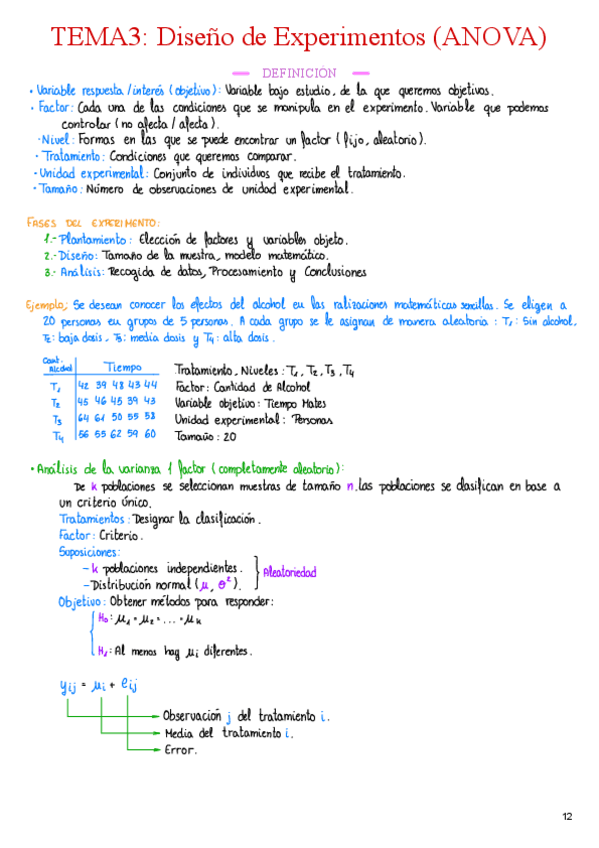 TEMA3: Diseño de Experimentos (ANOVA)
DEFINICIÓN
• Variable respuesta/interés (objetivo): Variable bajo estudio, de la que queremos objetivos.
• Factor: Cada una de las condiciones que se manipula en el experimento. Variable que podemos
controlar (no afecta/afecta).
• Nivel: Formas en las que se puede encontrar un factor (fijo, aleatorio).
• Tratamiento: Condiciones que queremos comparar.
• Unidad experimental: Conjunto de individuos que recibe el tratamiento.
• Tamaño: Número de observaciones de unidad experimental.
FASES DEL EXPERIMENTO:
1.- Plantamiento: Elección de factores y variables objeto.
2.- Diseño: Tamaño de la muestra, modelo matemático.
3.- Análisis: Recogida de datos, Procesamiento y Conclusiones
Ejemplo; Se desean conocer los efectos del alcohol en las ralizaciones matemáticas sencillas. Se eligen a
20 personas en grupos de 5 personas. A cada grupo se le asignan de manera aleatoria: T1: Sin alcohol,
T2: baja dosis, T3: media dosis y T4: alta dosis.
Cant. Alcohol Tiempo
T1 42 39 48 43 44
T2 45 46 45 39 43
T3 64 61 50 55 58
T4 56 55 62 59 60
Tratamiento, Niveles: T1, T2, T3, T4
Factor: Cantidad de Alcohol
Variable objetivo: Tiempo Mates
Unidad experimental: Personas
Tamaño: 20
• Análisis de la varianza 1 factor (completamente aleatorio):
De k poblaciones se seleccionan muestras de tamaño n. las poblaciones se clasifican en base a
un criterio único.
Tratamientos: Designar la clasificación.
Factor: Criterio.
Suposiciones:
- k poblaciones independientes.
- Distribución normal (μ, σ²). } Aleatoriedad
Objetivo: Obtener métodos para responder:
H0: μ1 = μ2 = ... = μk
H1: Al menos hay μi diferentes.
yij = μi + eij
Observación j del tratamiento i.
Media del tratamiento i.
Error.
12